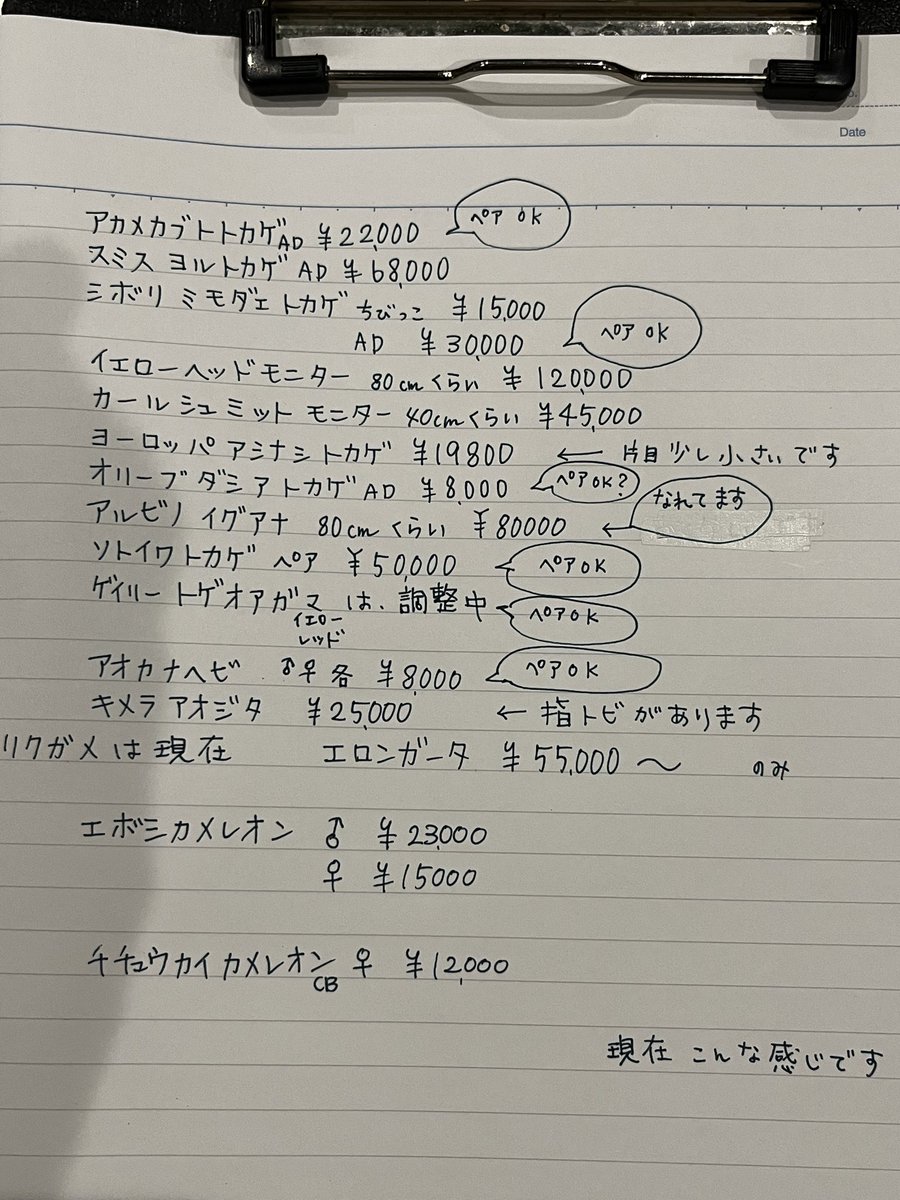 Date
アカメカブトトカゲAD ¥22,000 ペア OK
スミス ヨルトカゲ AD ¥68,000
シボリ ミモダエ トカゲ ちびっこ ¥15,000
AD ¥30,000 ペア OK
イエローヘッドモニター 80cmくらい ¥120,000
カールシュミットモニター 40cmくらい ¥45,000
ヨーロッパアシナシトカゲ ¥19800 ← 片目少し小さいです
オリーブダシアトカゲAD ¥8,000 ペアOK?
アルビノイグアナ 80cmくらい ¥80000 ← なれてます
ソトイワトカゲ ペア ¥50,000 ペアOK
ゲイリートゲオアガマは、調整中 ペアOK
イエロー
レッド
アオカナヘビ ♂♀各 ¥8,000 ペアOK
キメラアオジタ ¥25,000 ← 指トビがあります
リクガメは現在 エロンガータ ¥55,000〜 のみ
エボシカメレオン ♂ ¥23,000
♀ ¥15000
チチュウカイカメレオン ♀ ¥12,000
CB
現在こんな感じです